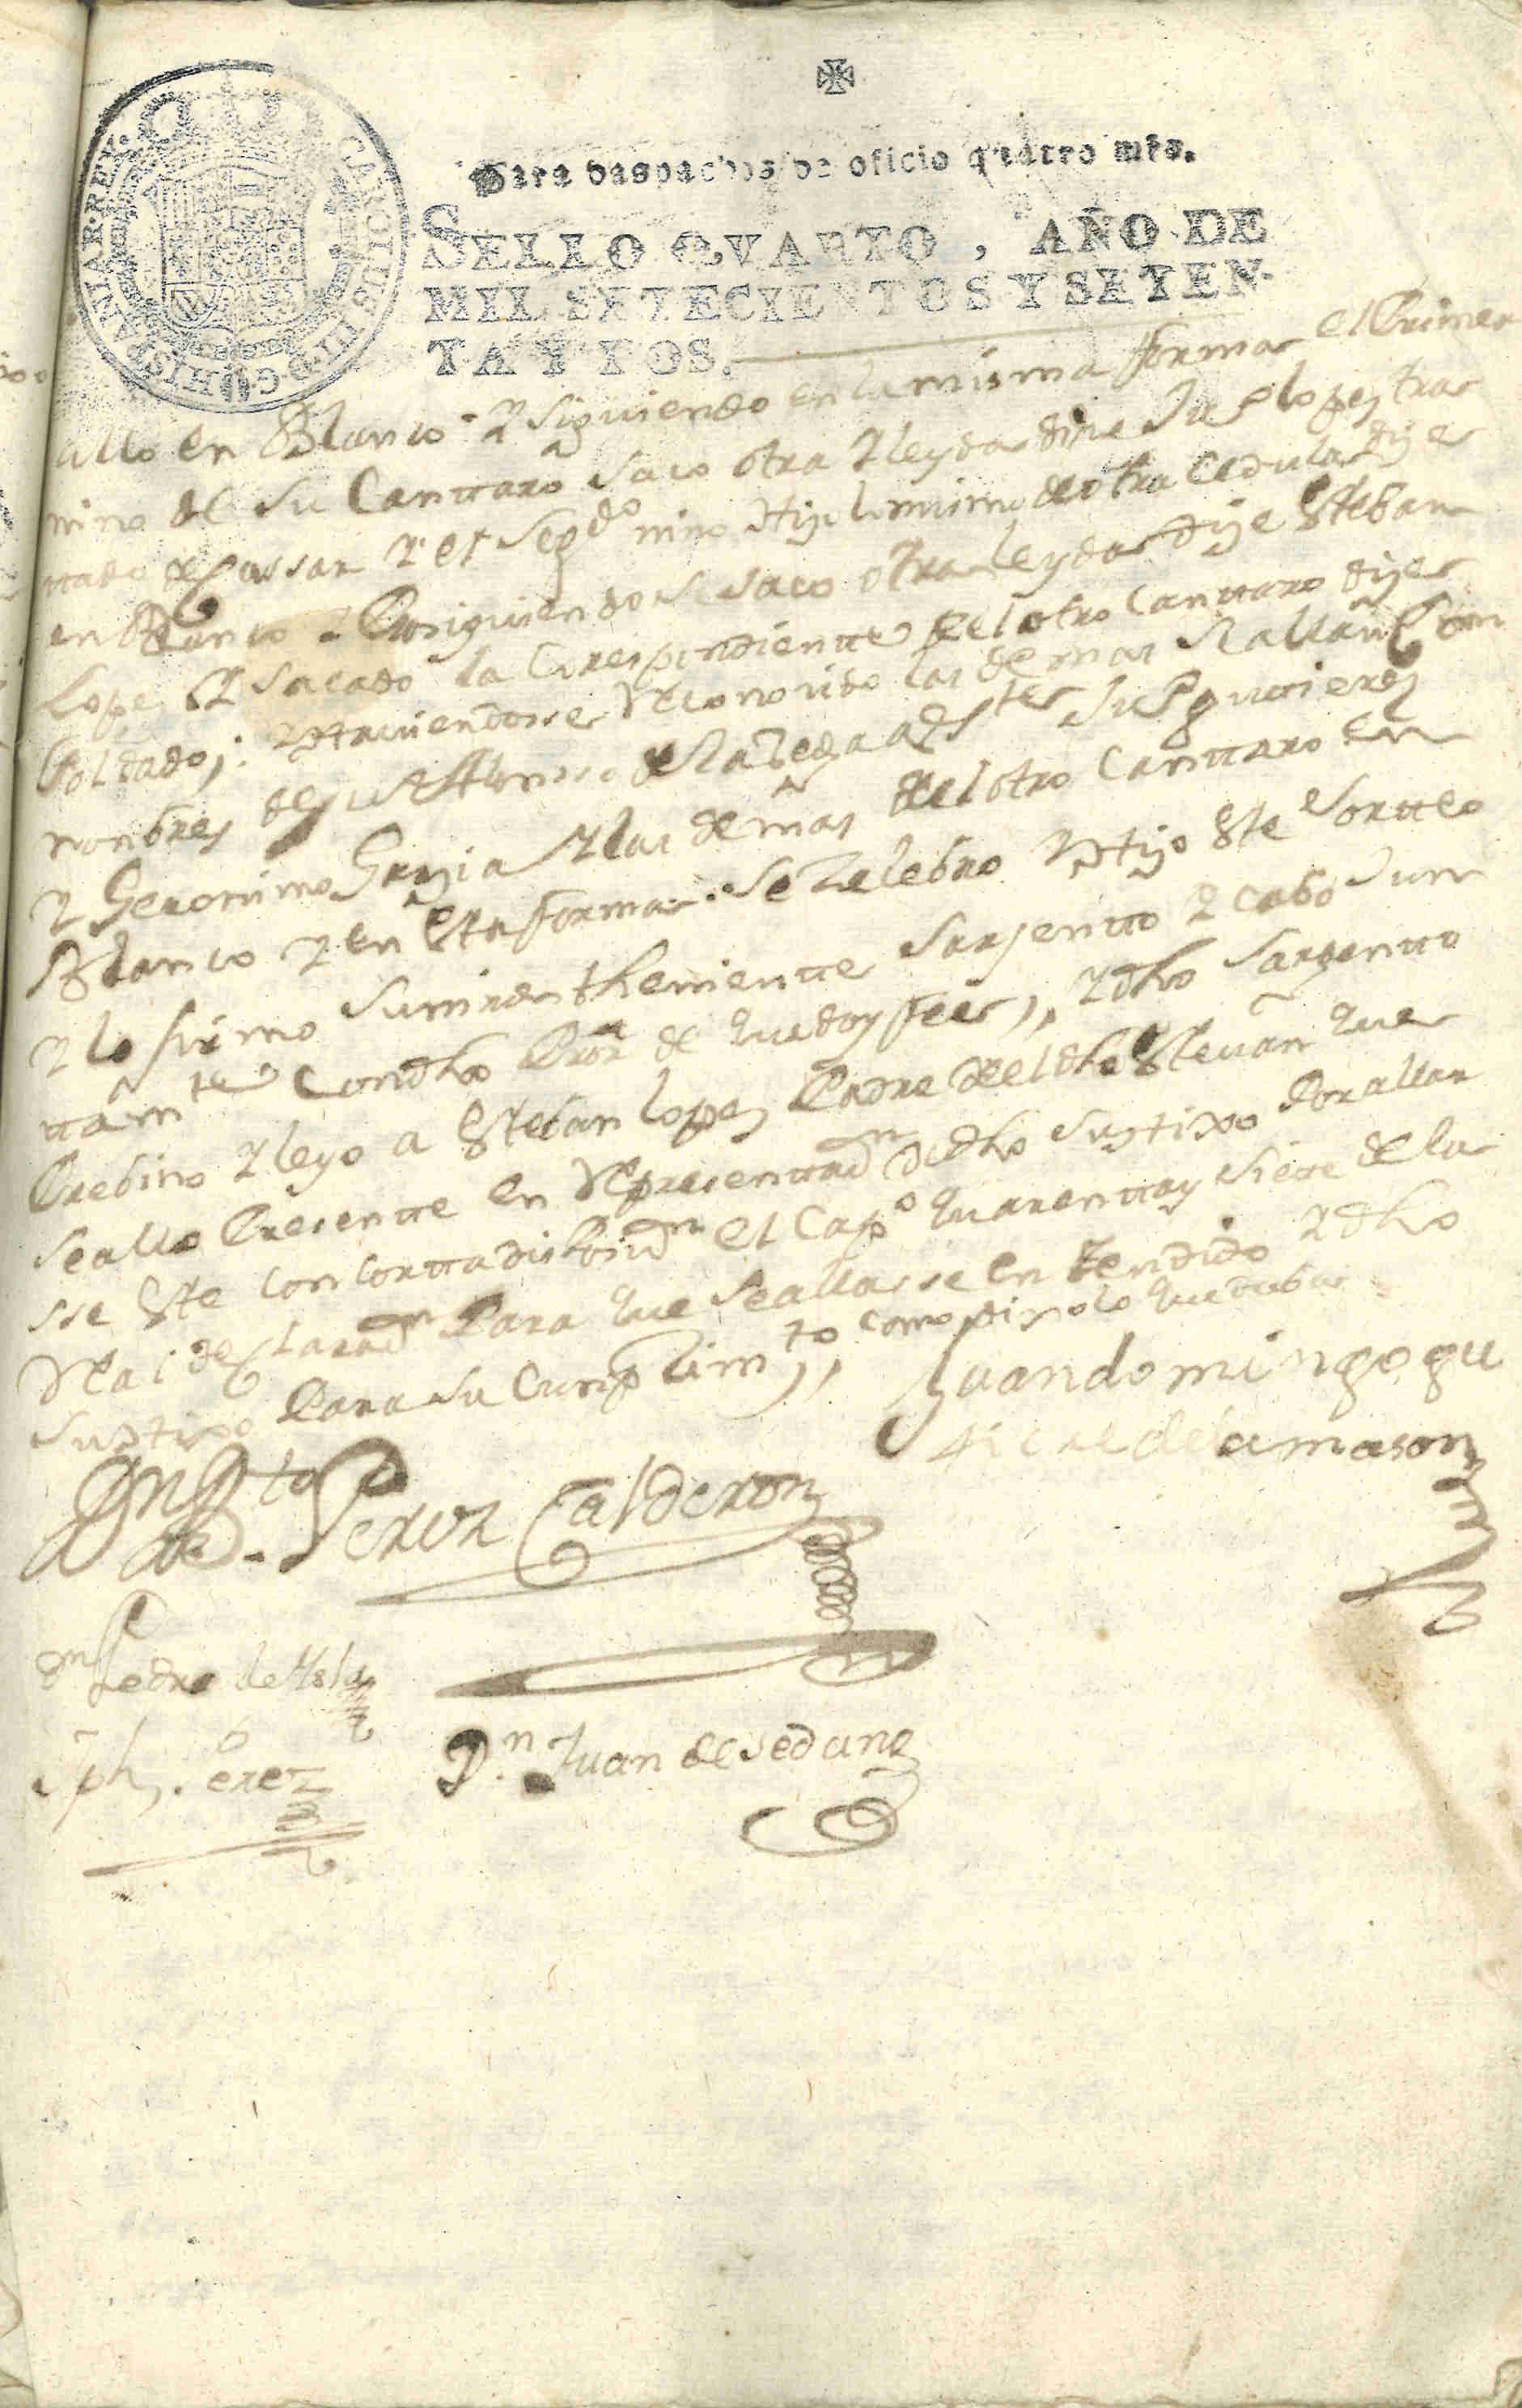 CAROLUS III D G HISPANIAR REX
Para despachos de oficio quatro mrs.
SELLO QVARTO, AÑO DE
MIL SETECIENTOS Y SETEN-
TA Y DOS.
allo en Blanco y siguiendo en la misma forma el Primer
nino de su Canttaro saco otra y leyda dize Jusep lopez tra
ttado de Cassar y el Segdo nino Hizo lo mismo de otra Cedula dize
en Blanco y Prosiguiendo se saco otra leyda dize Esteban
Lopez y sacado la Correspondiente del otro Canttaro dize
Soldado; y Haviendosse Reconozido las demas se allan Con
nonbres de Alfonso de la Vega Jusep gutierez
y Geronimo Garzia y las demas del otro Canttaro en
Blanco y en Esta forma se Zelebro y Hizo Este Sortteo
y lo firmo Su mrd Theniente Sarjentto y cabo Jun
ttamte Con dho de que doy fee,, y dho Sargentto
Prebino y leyo a Esteban lopez Padre del dho Estevan que
se allo Presente en Representtaon de dho Su ztixo Por allar
sse Este con el Capo quarenttay Siete de la
Real declaraon Para que se allasse en Tendido y dho
Su ztixo Para su Cumplimto,, como dixo lo quedaba
Juan domingo gu
de la mason
Perez Calderon
Dn Pedro de Isla
Jph Perez
Dn Juan de sedano